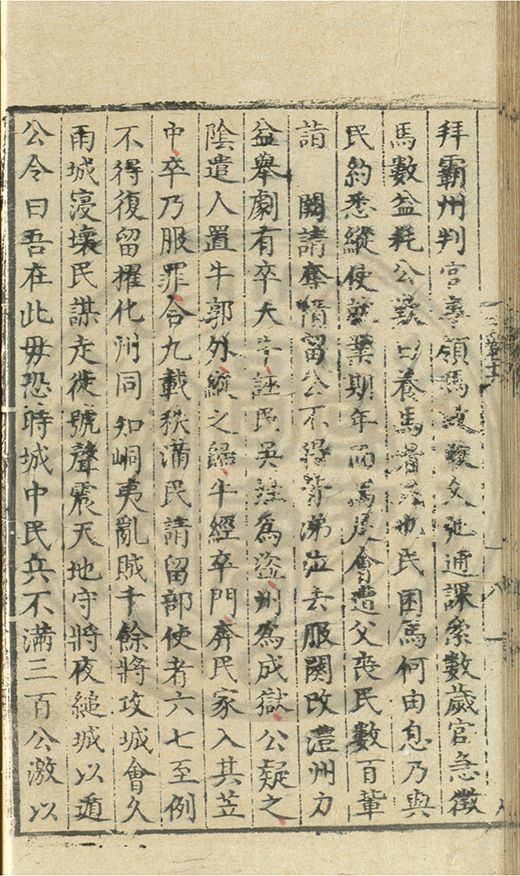 拜霸州判官領馬課數歲官急徵
馬數益耗公歎曰養馬者民也民困馬何由息乃與
民約悉縱使就業期年而馬會遭父喪民數百輩
詣 闕請奪情留公不涕泣去服闋改澧州力
益舉劇有卒失牛誣民吳為盜州為成獄公疑之
陰遣人置牛郭外縱之歸牛經卒門奔民家入其苙
中卒乃服罪合九載秩滿民請留部使者六七至例
不得復留擢化州同知峒夷亂賊千餘將攻城會久
雨城寖壞民謀走徙號聲震天地守將夜縋城以遁
公令曰吾在此毋恐時城中民兵不滿三百公激以